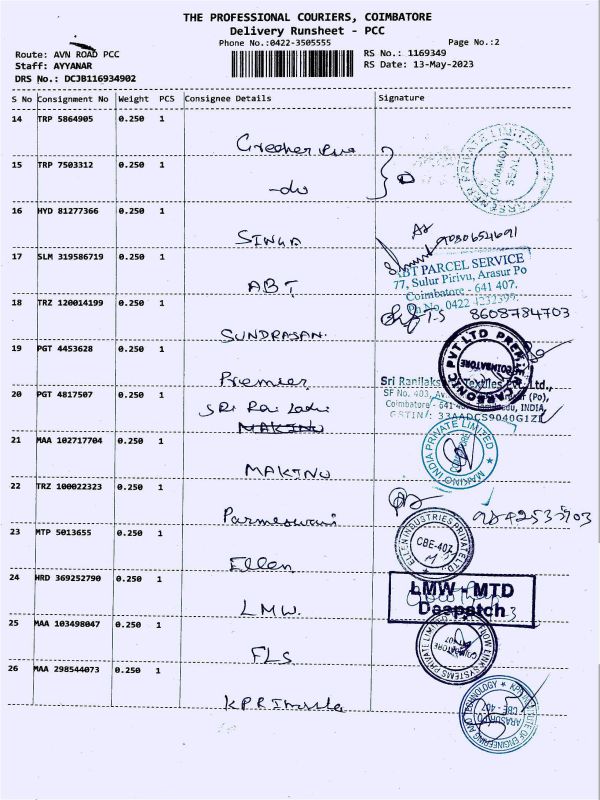 THE PROFESSIONAL COURIERS, COIMBATORE
Delivery Runsheet - PCC
Phone No.:0422-3505555 Page No.:2
Route: AVN ROAD PCC RS No.: 1169349
Staff: AYYANAR RS Date: 13-May-2023
DRS No.: DCJB116934902
S No Consignment No Weight PCS Consignee Details Signature
14 TRP 5864905 0.250 1
COMMON SEAL
15 TRP 7503312 0.250 1
-do
16 HYD 81277366 0.250 1
SINGA
9080654691
17 SLM 319586719 0.250 1
ABT PARCEL SERVICE
77, Sulur Pirivu, Arasur Po
Coimbatore - 641 407.
ABT
18 TRZ 120014199 0.250 1
8608784703
SUNDRASAN.
19 PGT 4453628 0.250 1
Premier
20 PGT 4817507 0.250 1
MAKINO
GSTIN: 33AADCS9040G1ZI
21 MAA 102717704 0.250 1
MAKINO INDIA PRIVATE LIMITED
MAKINO
22 TRZ 100022323 0.250 1
Parmeswari
23 MTP 5013655 0.250 1
ELLEN INDUSTRIES PRIVATE LTD
CBE-407
Ellen
24 HRD 369252790 0.250 1
LMW - MTD
Despatch
LMW.
25 MAA 103498047 0.250 1
FLS
26 MAA 298544073 0.250 1
KPR INSTITUTE OF ENGINEERING AND TECHNOLOGY
CBE - 407
KPR